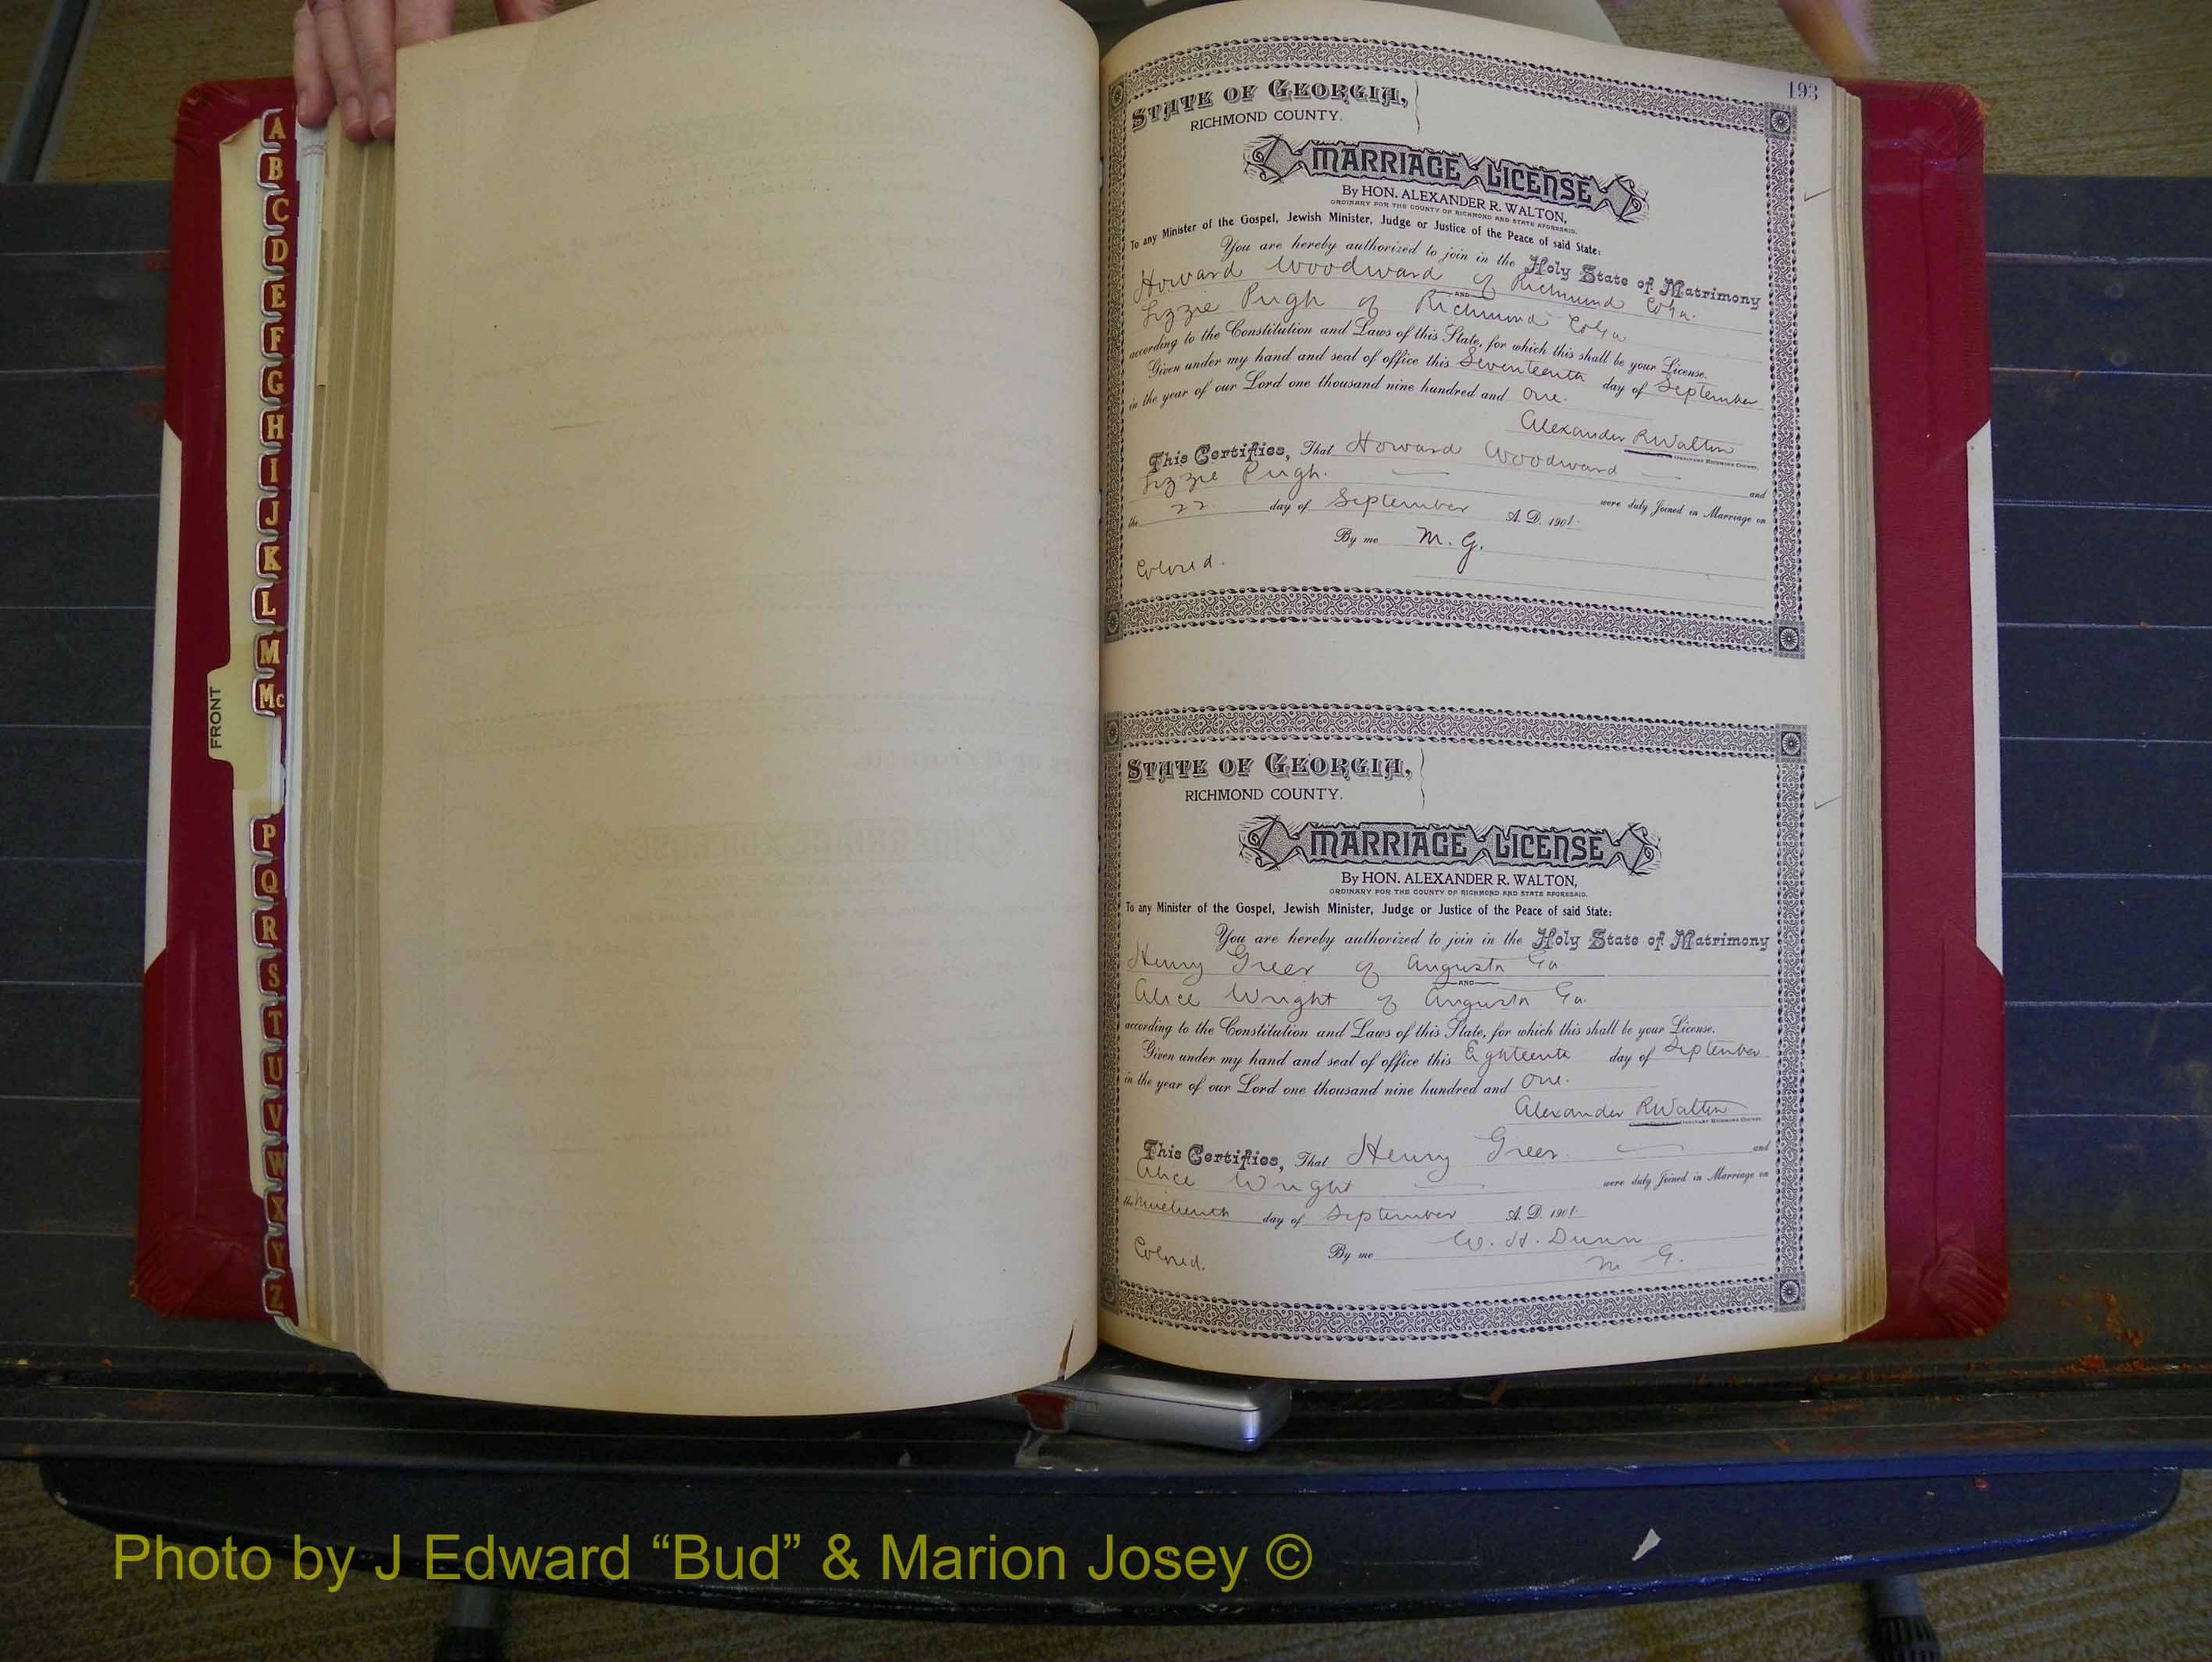 A
B
C
D
E
F
G
H
I
J
K
L
M
Mc
FRONT
P
Q
R
S
T
U
V
W
X
Y
Z
193
STATE OF GEORGIA,
RICHMOND COUNTY.
MARRIAGE LICENSE
By HON. ALEXANDER R. WALTON,
ORDINARY FOR THE COUNTY OF RICHMOND AND STATE AFORESAID.
To any Minister of the Gospel, Jewish Minister, Judge or Justice of the Peace of said State:
You are hereby authorized to join in the Holy State of Matrimony
Howard Woodward of Richmond Co Ga.
AND
Lizzie Pugh of Richmond Co Ga
according to the Constitution and Laws of this State, for which this shall be your License.
Given under my hand and seal of office this Seventeenth day of September
in the year of our Lord one thousand nine hundred and one.
Alexander R Walton
ORDINARY RICHMOND COUNTY.
This Certifies, That Howard Woodward and
Lizzie Pugh. were duly Joined in Marriage on
the 22 day of September A. D. 1901.
By me M. G.
Colored.
STATE OF GEORGIA,
RICHMOND COUNTY.
MARRIAGE LICENSE
By HON. ALEXANDER R. WALTON,
ORDINARY FOR THE COUNTY OF RICHMOND AND STATE AFORESAID.
To any Minister of the Gospel, Jewish Minister, Judge or Justice of the Peace of said State:
You are hereby authorized to join in the Holy State of Matrimony
Henry Greer of Augusta Ga
AND
Alice Wright of Augusta Ga.
according to the Constitution and Laws of this State, for which this shall be your License.
Given under my hand and seal of office this Eighteenth day of September
in the year of our Lord one thousand nine hundred and one.
Alexander R Walton
ORDINARY RICHMOND COUNTY.
This Certifies, That Henry Greer and
Alice Wright were duly Joined in Marriage on
the Nineteenth day of September A. D. 1901.
By me W. H. Dunn
M G.
Colored.
Photo by J Edward “Bud” & Marion Josey ©